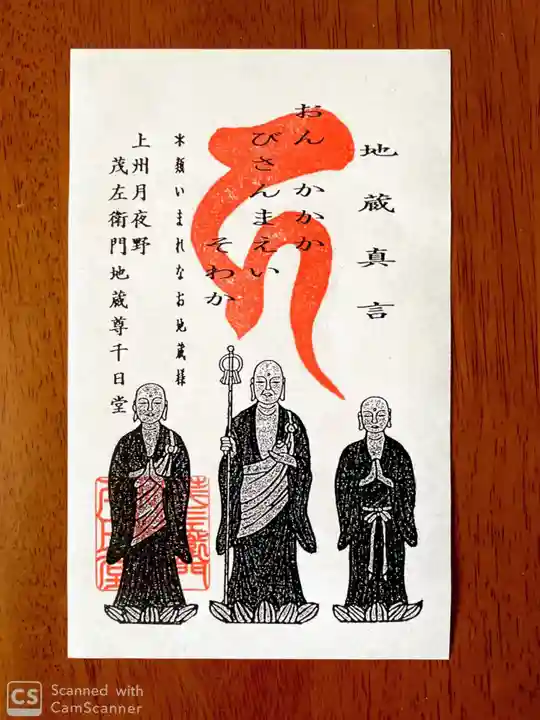 地蔵真言
おんかかか
びさんまえい
そわか
木類いまれなお地蔵様
上州月夜野
茂左衛門地蔵尊千日堂
CS Scanned with
CamScanner